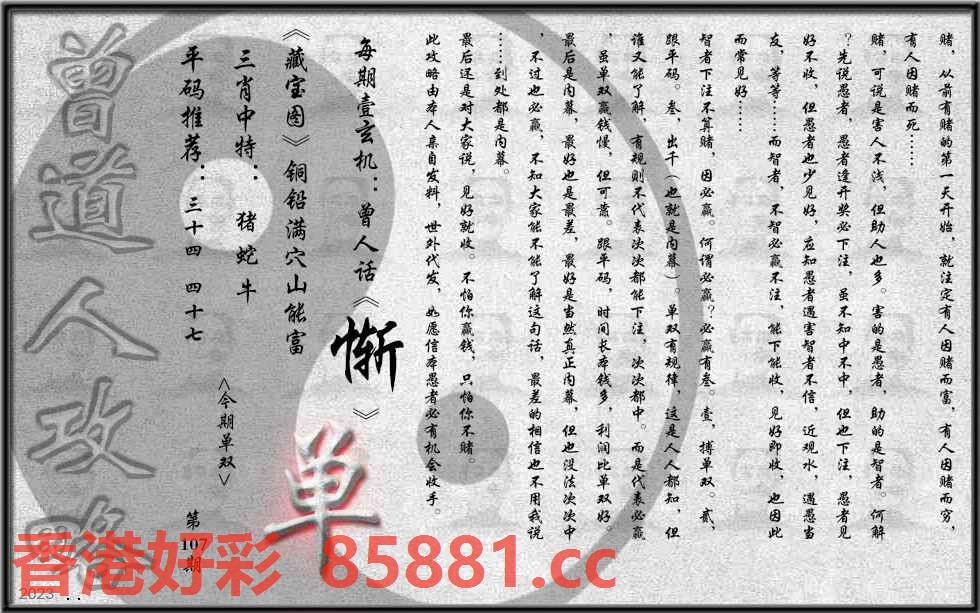 赌，从前有赌的第一天开始，就注定有人因赌而富，有人因赌而穷，
有人因赌而死……
赌，可说是害人不浅，但助人也多。害的是愚者，助的是智者。何解
？先说愚者，愚者逢开奖必下注，虽不知中不中，但也下注，愚者见
好不收，但愚者也少见好，应知愚者遇害智者不信，近观水，遇愚当
友，等等……而智者，不智必赢不注，能下能收，见好即收，也因此
而常见好……
智者下注不算赌，因必赢。何谓必赢？必赢有叁。壹，搏单双。贰，
跟平码。叁，出千（也就是内幕）。单双有规律，这是人人都知，但
谁又能了解，有规则不代表次次都能下注，次次都中。而是代表必赢
，虽单双赢钱慢，但可靠。跟平码，时间长本钱多，利润比单双好。
最后是内幕，最好也是最差，最好是当然真正内幕，但也没法次次中
，不过也必赢，不知大家能不能了解这句话，最差的相信也不用我说
……到处都是内幕。
最后还是对大家说，见好就收。不怕你赢钱，只怕你不赌。
此攻略由本人亲自发料，世外代发，如愿信本愚者必有机会收手。
每期壹玄机：曾人话《惭》
《藏宝图》铜铅满穴山能富
三肖中特：猪蛇牛
<今期单双>
单
平码推荐：三十四 四十七
第107期
曾道人攻略
香港好彩 85881.cc
2023